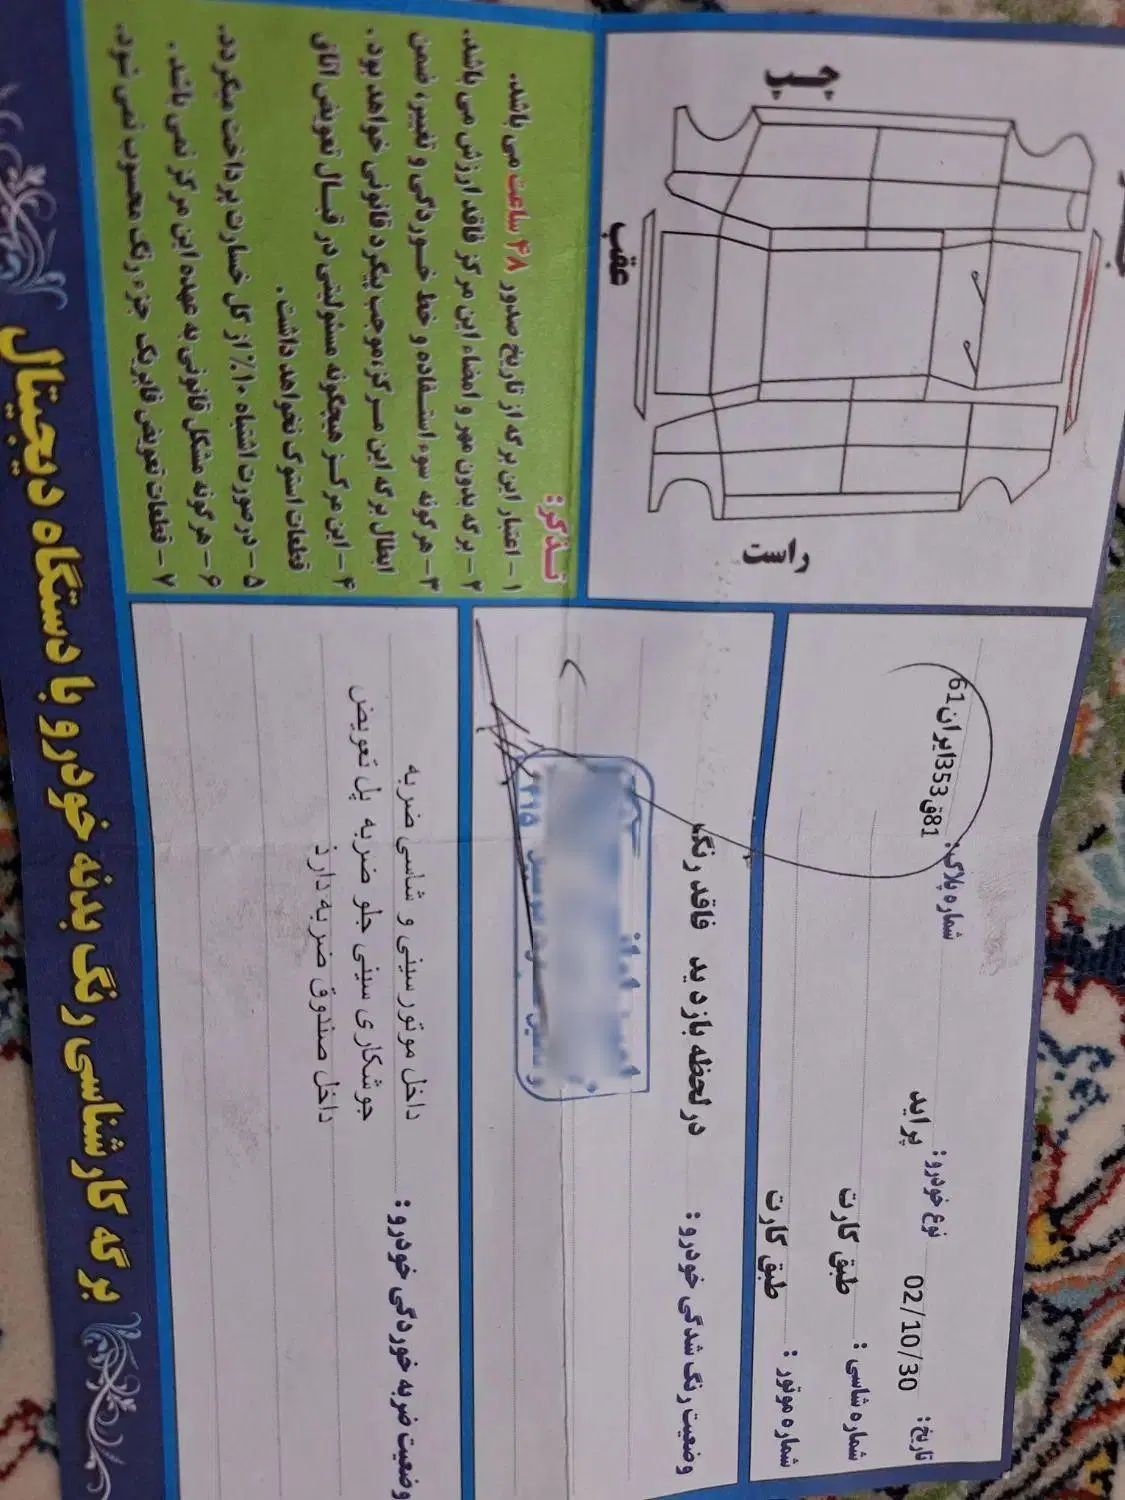 برگه کارشناسی رنگ بدنه خودرو با دستگاه دیجیتال
تاریخ: 02/10/30
نوع خودرو: پراید
شماره پلاک: 81ق353ایران61
شماره شاسی: طبق کارت
شماره موتور: طبق کارت
وضعیت رنگ شدگی خودرو: در لحظه بازدید فاقد رنگ
وضعیت ضربه خوردگی خودرو:
داخل موتور سینی و شاسی ضربه
جوشکاری سینی جلو ضربه پل تعویض
داخل صندوق ضربه دارد
چپ
عقب
راست
تذکر:
۱- اعتبار این برگه از تاریخ صدور ۴۸ ساعت می باشد.
۲- برگه بدون مهر و امضاء این مرکز فاقد ارزش می باشد.
۳- هرگونه سوء استفاده و خط خوردگی و تغییر، ضمن
ابطال برگه این مرکز، موجب پیگرد قانونی خواهد بود.
۴- این مرکز هیچگونه مسئولیتی در قبال تعویض اتاق
قطعات استوک نخواهد داشت.
۵- در صورت اشتباه ۱۰٪ از کل خسارت پرداخت میگردد.
۶- هرگونه مشکل قانونی به عهده این مرکز نمی باشد.
۷- قطعات تعویض فابریک جزء رنگ محسوب نمی شود.